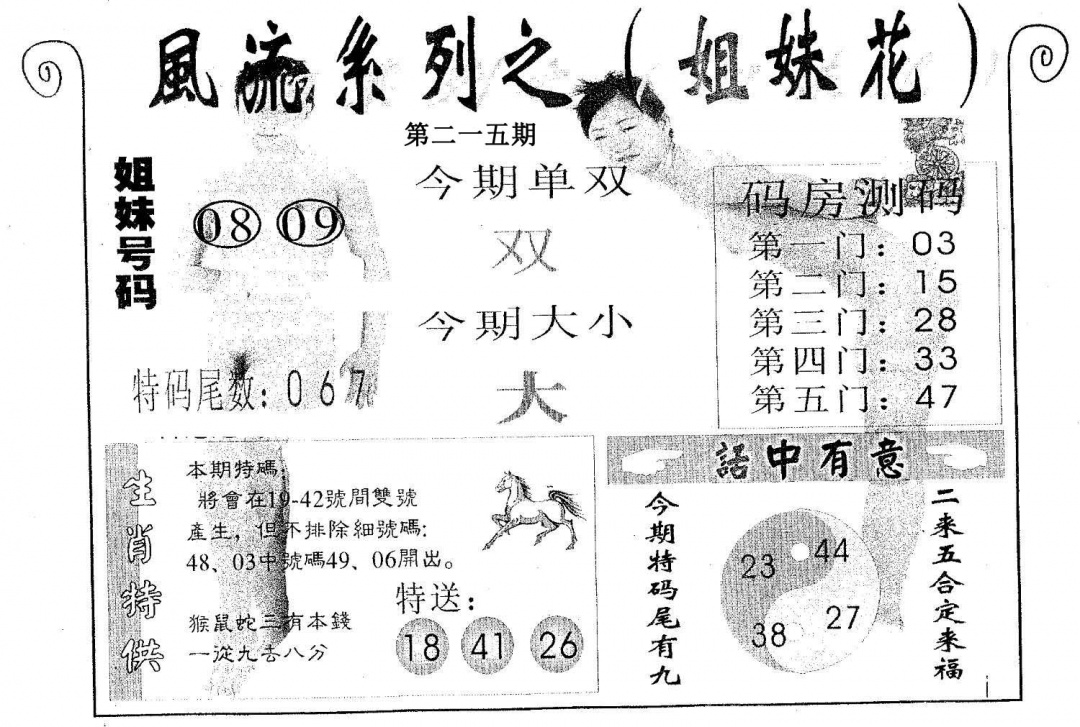 風流系列之（姐妹花）
第二一五期
姐妹号码
08 09
特码尾数：0 6 7
今期单双
双
今期大小
大
码房测码
第一门：03
第二门：15
第三门：28
第四门：33
第五门：47
生肖特供
本期特碼：
將會在19-42號間雙號
產生，但不排除細號碼：
48、03中號碼49、06開出。
猴鼠蛇三有本錢
一從九去八分
特送：
18 41 26
話中有意
今期特码尾有九
23 44
38 27
二来五合定来福